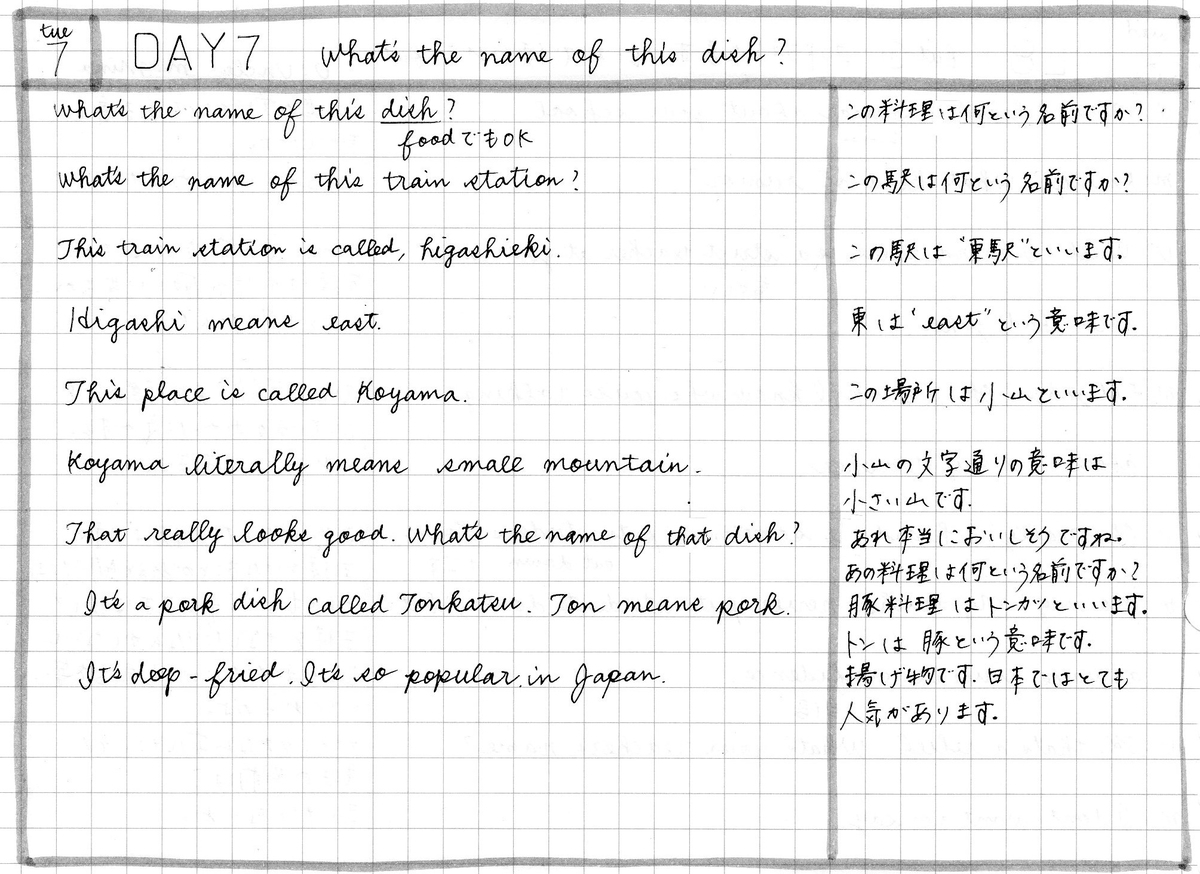 tue
7
DAY7 What's the name of this dish?
What's the name of this dish?
foodでもOK
この料理は何という名前ですか?
What's the name of this train station?
この駅は何という名前ですか?
This train station is called, higashieki.
この駅は"東駅"といいます。
Higashi means east.
東は'east"という意味です。
This place is called Koyama.
この場所は小山といいます。
Koyama literally means small mountain.
小山の文字通りの意味は
小さい山です.
That really looks good. What's the name of that dish?
あれ本当においしそうですね。
あの料理は何という名前ですか?
It's a pork dish called Tonkatsu. Ton means pork.
豚料理はトンカツといいます。
トンは豚という意味です.
It's deep-fried. It's so popular in Japan.
揚げ物です.日本ではとても
人気があります。